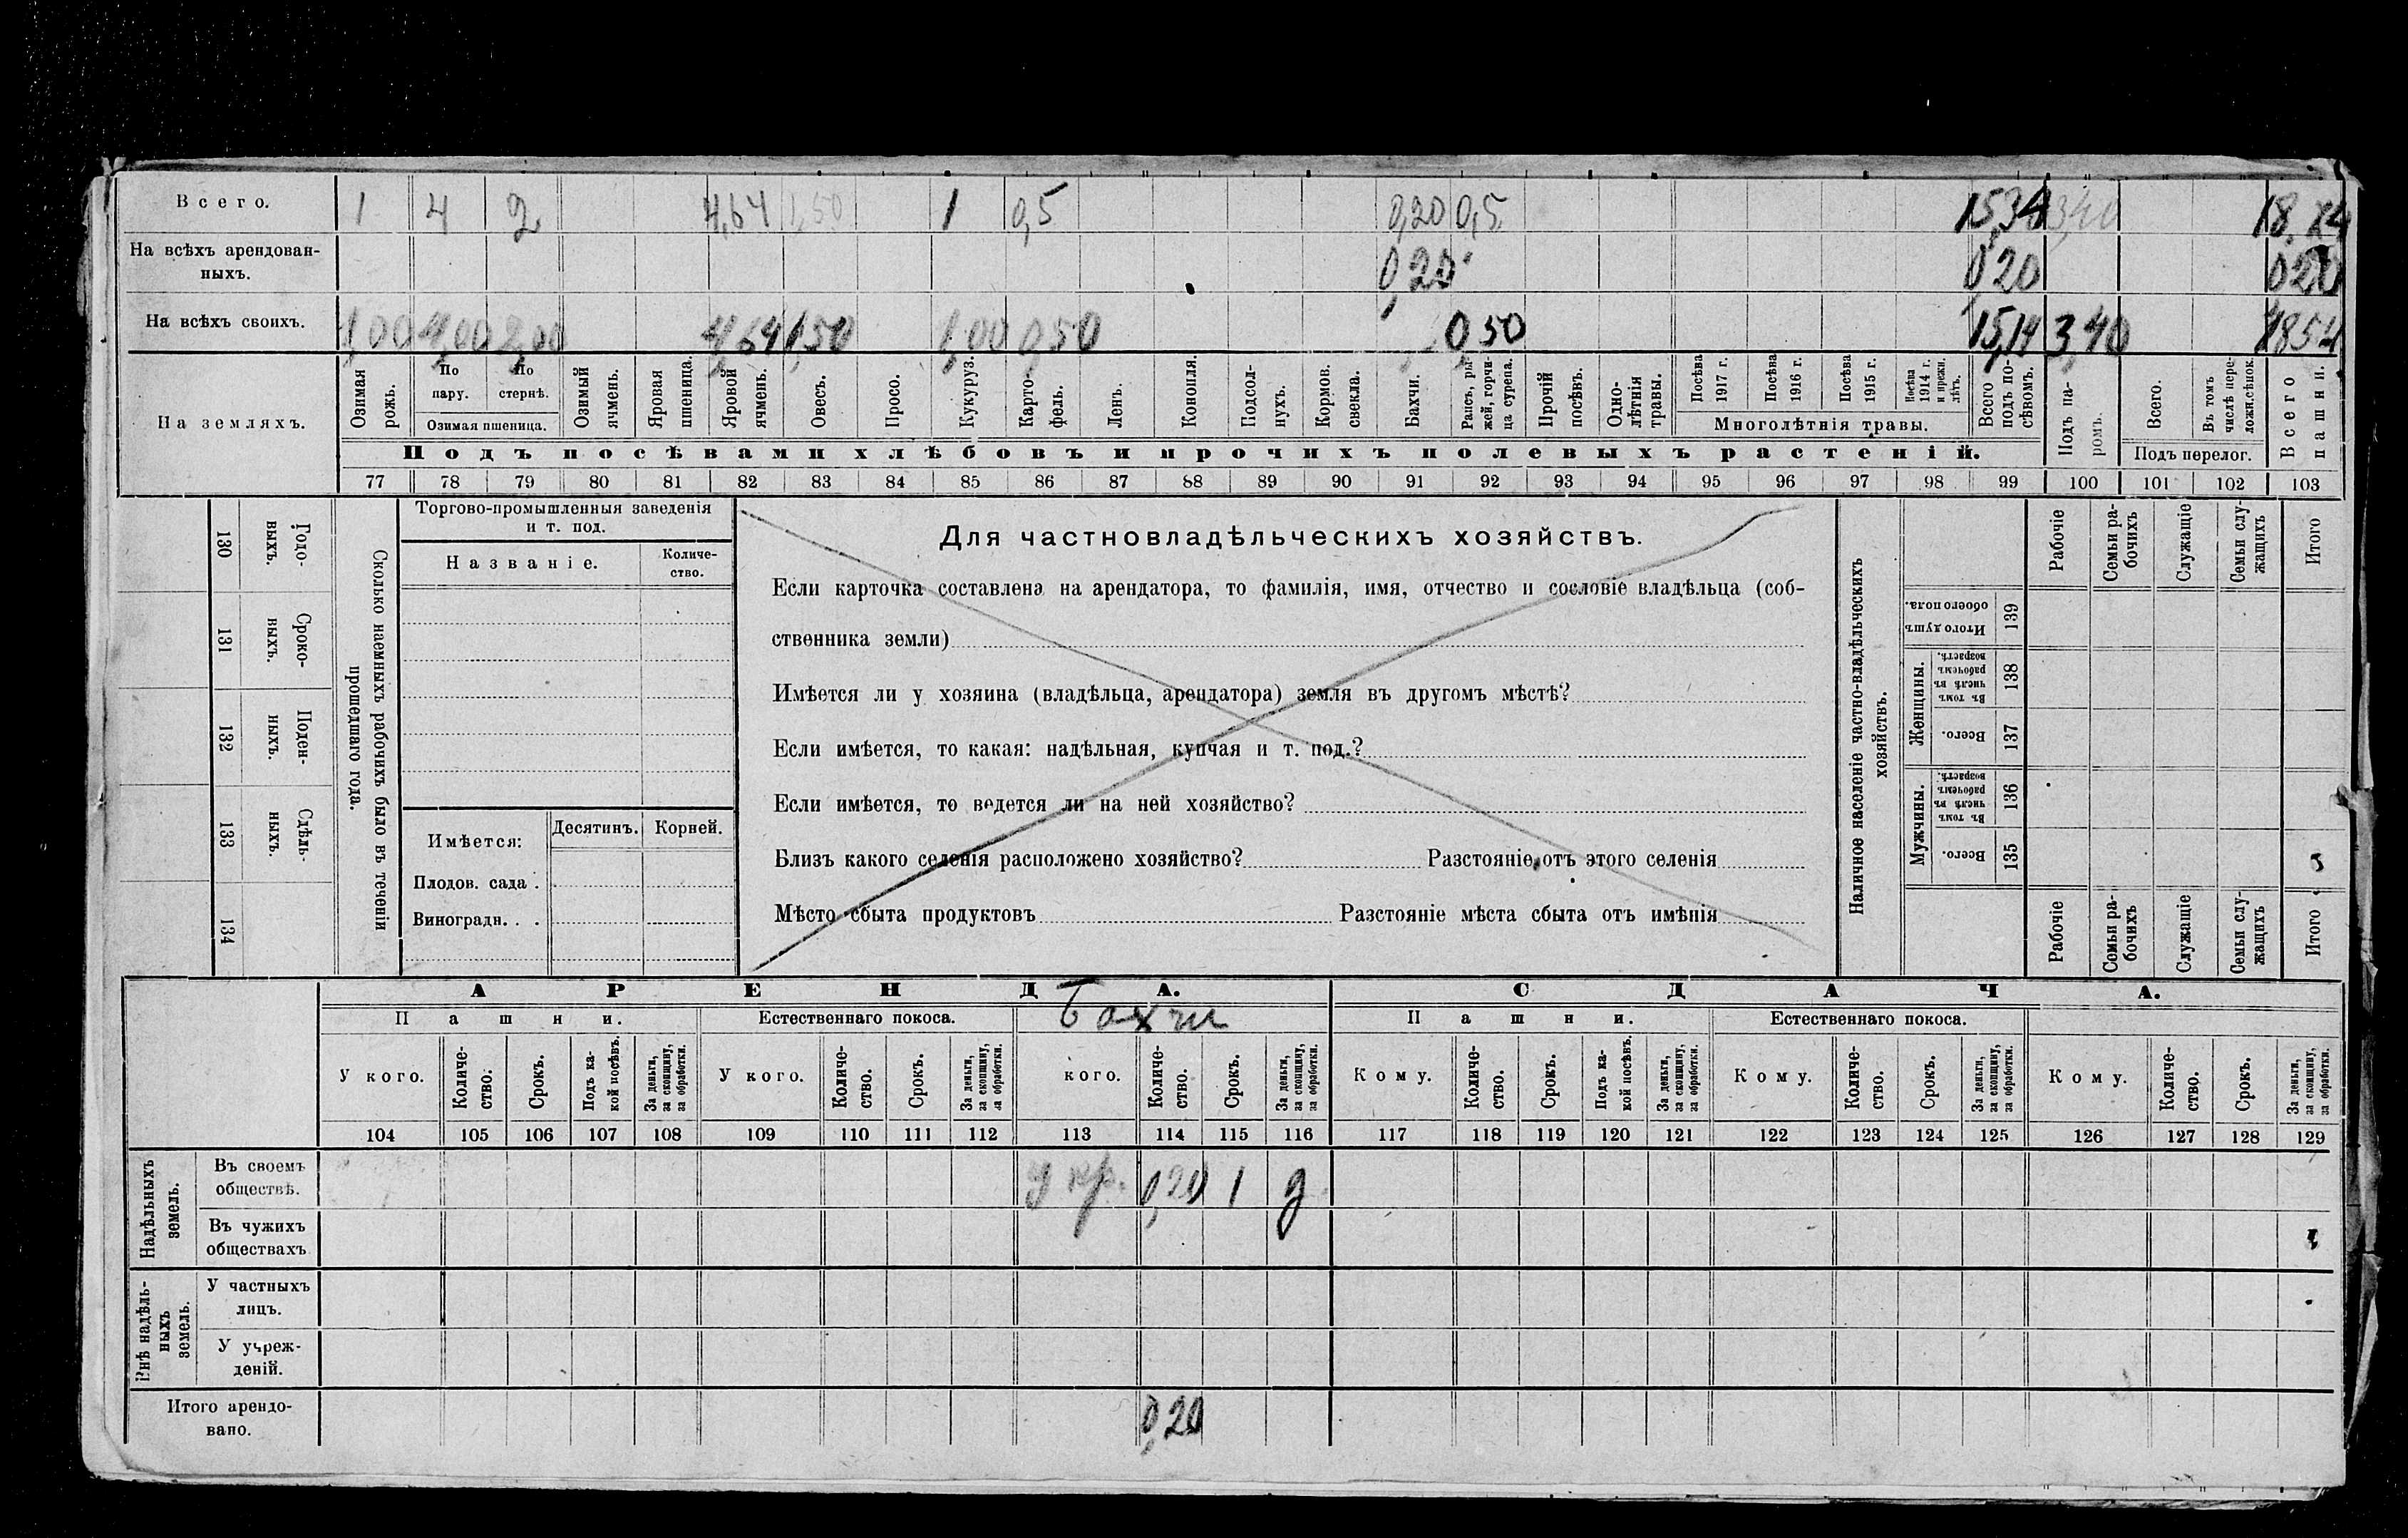 Всего. 1 4 2 4,64 1,50 1 0,5 0,20 0,5 15,34 3,40
На всѣхъ арендован-
ныхъ. 0,20 0,20 0,20
На всѣхъ своихъ. 1,00 4,00 2,00 4,64 1,50 1,00 0,50 0,50 15,14 3,40 18,54
На земляхъ.
Озимая рожь.
По пару.
По стернѣ.
Озимая пшеница.
Озимый ячмень.
Яровая пшеница.
Яровой ячмень.
Овесъ.
Просо.
Кукуруз.
Карто-
фель.
Ленъ.
Конопля.
Подсол-
нухъ.
Кормов.
свекла.
Бахчи.
Рапсъ, ры
жей, горчи-
ца сурепа.
Прочій
посѣвъ.
Одно-
лѣтнія
травы.
Посѣва
1917 г.
Посѣва
1916 г.
Посѣва
1915 г.
Посѣва
1914 г.
и прежн.
лѣтъ.
Многолѣтнія травы.
Всего
подъ по-
сѣвомъ.
Подъ па-
ромъ.
Всего.
Въ томъ
числѣ пере-
Подъ перелог.
Всего
пашни.
Подъ посѣвами хлѣбовъ и прочихъ полевыхъ растеній.
77 78 79 80 81 82 83 84 85 86 87 88 89 90 91 92 93 94 95 96 97 98 99 100 101 102 103
130 Годо-
выхъ.
131 Сроко-
ныхъ.
132 Поден-
ныхъ.
133 Сдѣль-
ныхъ.
134
Сколько наемныхъ рабочихъ было въ теченіи
прошедшаго года.
Торгово-промышленныя заведенія
и т. под.
Названіе.
Количе-
ство.
Имѣется:
Десятинъ. Корней.
Плодов. сада .
Виноградн. . .
Для частновладѣльческихъ хозяйствъ.
Если карточка составлена на арендатора, то фамилія, имя, отчество и сословіе владѣльца (соб-
ственника земли)
Имѣется ли у хозяина (владѣльца, арендатора) земля въ другомъ мѣстѣ?
Если имѣется, то какая: надѣльная, купчая и т. под.?
Если имѣется, то ведется ли на ней хозяйство?
Близъ какого селенія расположено хозяйство? Разстояніе отъ этого селенія
Мѣсто сбыта продуктовъ Разстояніе мѣста сбыта отъ имѣнія
Наличное населеніе частно-владѣльческихъ
хозяйствъ.
Рабочіе
Семьи ра-
бочихъ
Служащіе
Семьи слу-
жащихъ
Итого
Итого душъ
обоего пола.
139
Женщины.
Въ томъ
числѣ въ
рабочемъ
возрастѣ.
138
Всего.
137
Мужчины.
Въ томъ
числѣ въ
рабочемъ
возрастѣ.
136
Всего.
135
Рабочіе
Семьи ра-
бочихъ
Служащіе
Семьи слу-
жащихъ
Итого
АРЕНДА.
СДАЧА.
Пашни. Естественнаго покоса. Бахчи Пашни. Естественнаго покоса.
У кого.
Количе-
ство.
Срокъ.
Подъ ка-
кой посѣвъ.
За деньги,
за скопщину,
за обработки.
У кого.
Количе-
ство.
Срокъ.
За деньги,
за скопщину,
за обработки.
кого.
Количе-
ство.
Срокъ.
За деньги,
за скопщину,
за обработки.
Кому.
Количе-
ство.
Срокъ.
Подъ ка-
кой посѣвъ.
За деньги,
за скопщину,
за обработки.
Кому.
Количе-
ство.
Срокъ.
За деньги,
за скопщину,
за обработки.
Кому.
Количе-
ство.
Срокъ.
За деньги,
за скопщину,
за обработки.
104 105 106 107 108 109 110 111 112 113 114 115 116 117 118 119 120 121 122 123 124 125 126 127 128 129
Надѣльныхъ
земель.
Въ своемъ
обществѣ. У кр. 0,20 1 д
Въ чужихъ
обществахъ
Внѣ надѣль-
ныхъ
земель.
У частныхъ
лицъ.
У учреж-
деній.
Итого арендо-
вано. 0,20